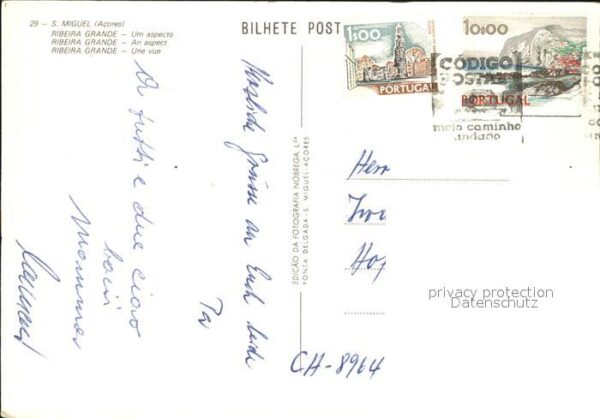 29 – S. MIGUEL (Açores)
RIBEIRA GRANDE – Um aspecto
RIBEIRA GRANDE – An aspect
RIBEIRA GRANDE – Une vue
BILHETE POST
1$00
PORTUGAL
10$00
PORTUGAL
CÓDIGO
POSTAL
meio caminho
andado
EDIÇÃO DA FOTOGRAFIA NÓBREGA, L.DA
PONTA DELGADA - S. MIGUEL - AÇORES
Grüsse an Euch beide
Da tutti e due ciao
bacii
Herr
CH-8964
privacy protection
Datenschutz